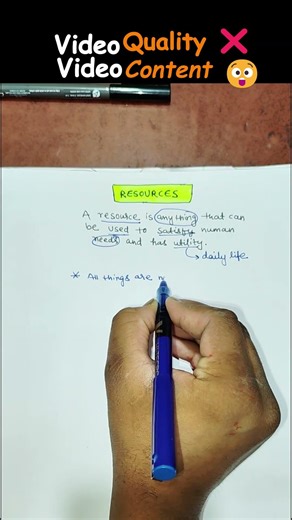 Video Quality ❌
Video Content 😲
RESOURCES
A resource is anything that can
be used to satisfy human
needs and has utility.
→ daily life
* All things are